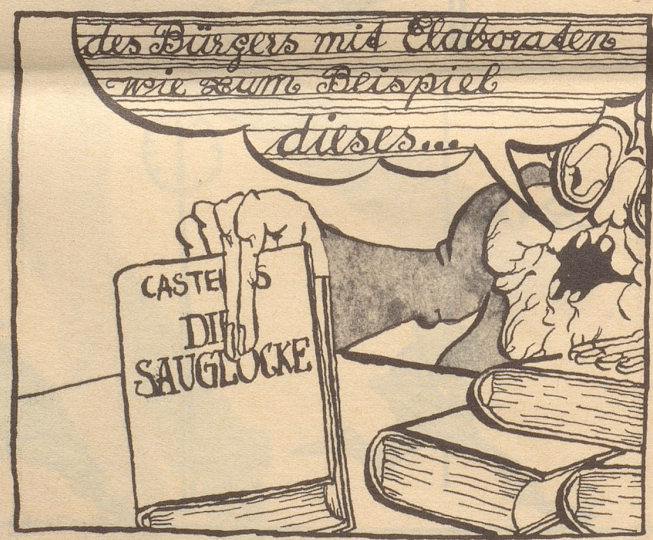 des Bürgers mit Elaboraten
wie zum Beispiel
dieses...
CASTE S
DIE
SAUGLOCKE